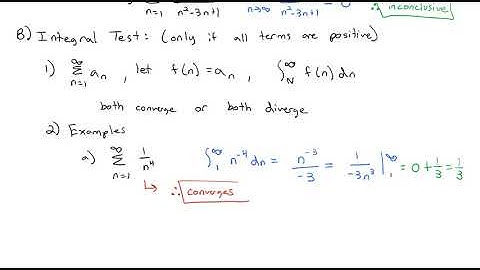 ∞Σn=1 n²-3n+1 n→∞ n²-3n+1 = 0 ∴ inconclusive
B) Integral Test: (only if all terms are positive)
1) ∞Σn=1 aₙ , let f(n) = aₙ , ∫N^∞ f(n) dn
both converge or both diverge
2) Examples
a) ∞Σn=1 1/n⁴ ∫₁^∞ n⁻⁴ dn = n⁻³/-3 = 1/-3n³ |₁^∞ = 0 + 1/3 = 1/3
∴ converges